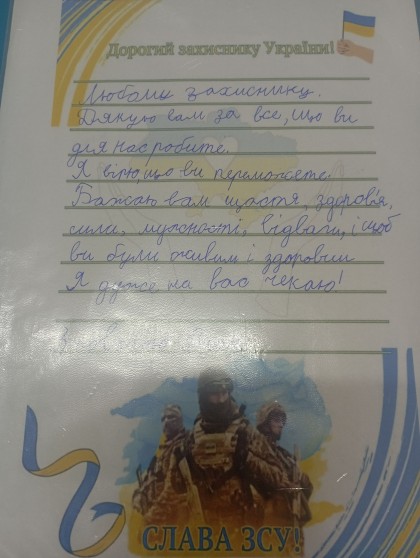 Дорогий захиснику України!
Любому захиснику.
Дякую вам за все, що ви
для нас робите.
Я вірю, що ви переможете
Бажаю вам щастя, здоров'я,
сили, мужності, відваги, і щоб
ви були живим і здоровим
Я дуже на вас чекаю!
СЛАВА ЗСУ!